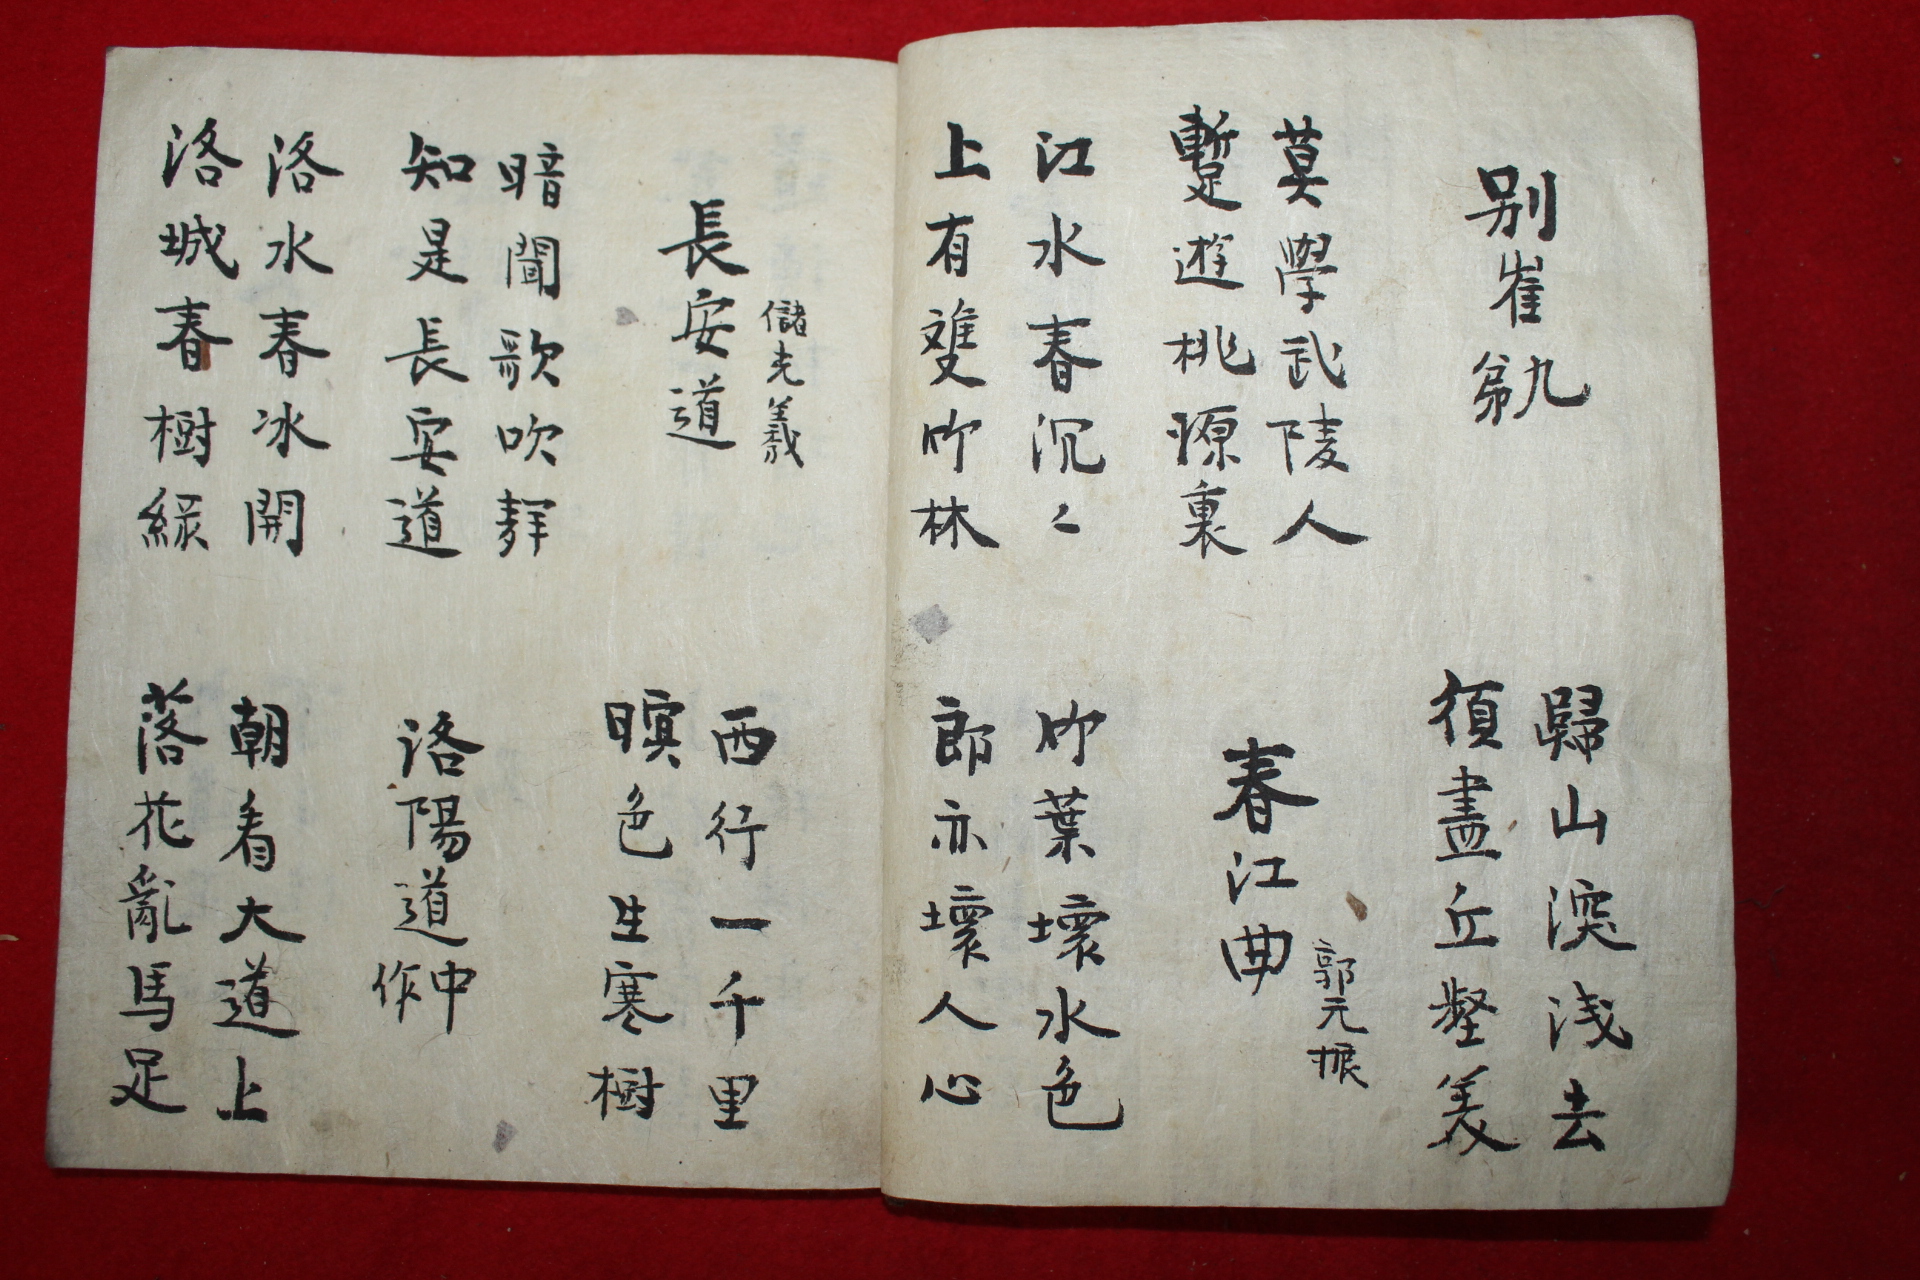 別崔九弟
歸山深淺去
須盡丘壑美
莫學武陵人
暫遊桃源裏
春江曲
郭元振
江水春沉〻
上有雙竹林
竹葉壞水色
郎亦壞人心
儲光羲
長安道
西行一千里
暝色生寒樹
暗聞歌吹聲
知是長安道
洛陽道中作
洛水春冰開
洛城春樹綠
朝看大道上
落花亂馬足